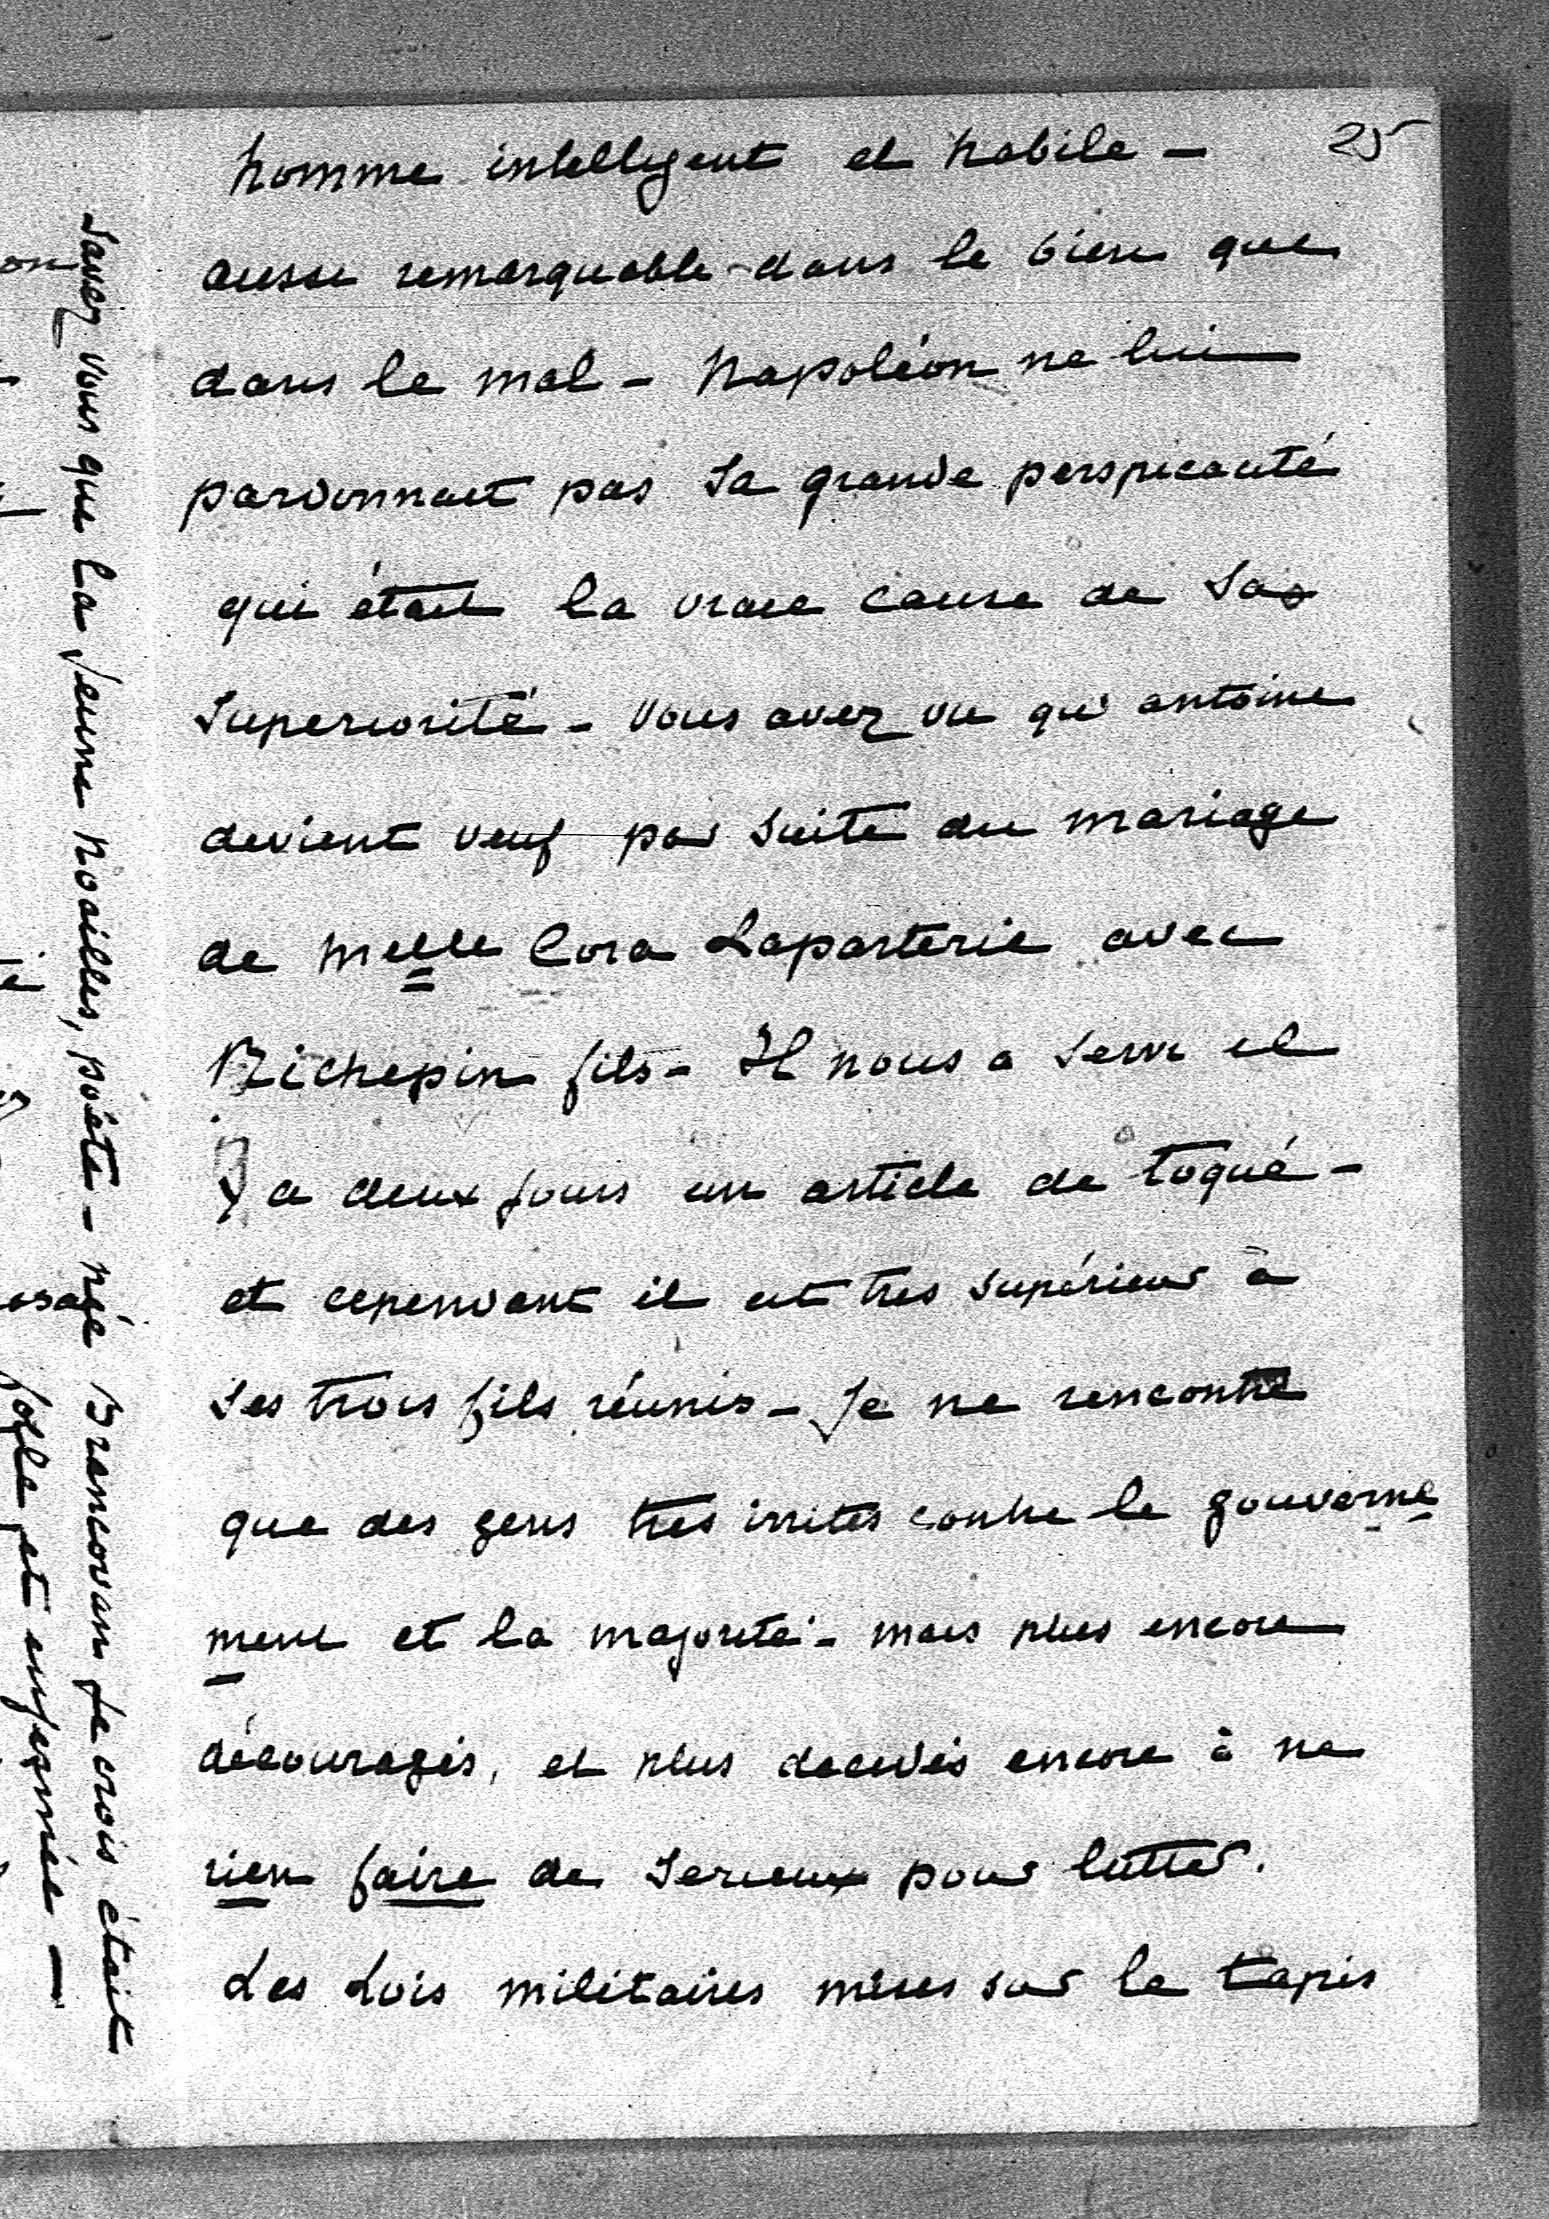 25
homme intelligent et habile -
aussi remarquable dans le bien que
dans le mal - Napoléon ne lui
pardonnait pas sa grande perspicacité
qui était la vraie cause de sa
superiorité - Vous avez vu qu'antoine
devient veuf par suite du mariage
de Melle Cora Laparterie avec
Richepin fils - Il nous a servi il
y a deux jours un article de toqué -
et cependant il est tres supérieur à
ses trois fils réunis - Je ne rencontre
que des gens très irrités contre le gouverne
ment et la majorité - mais plus encore
découragés, et plus decidés encore à ne
rien faire de serieux pour lutter.
Les Lois militaires mises sur le tapis
Savez vous que la jeune Noailles, poéte - née Brancovan je crois était
folle et enfermée -